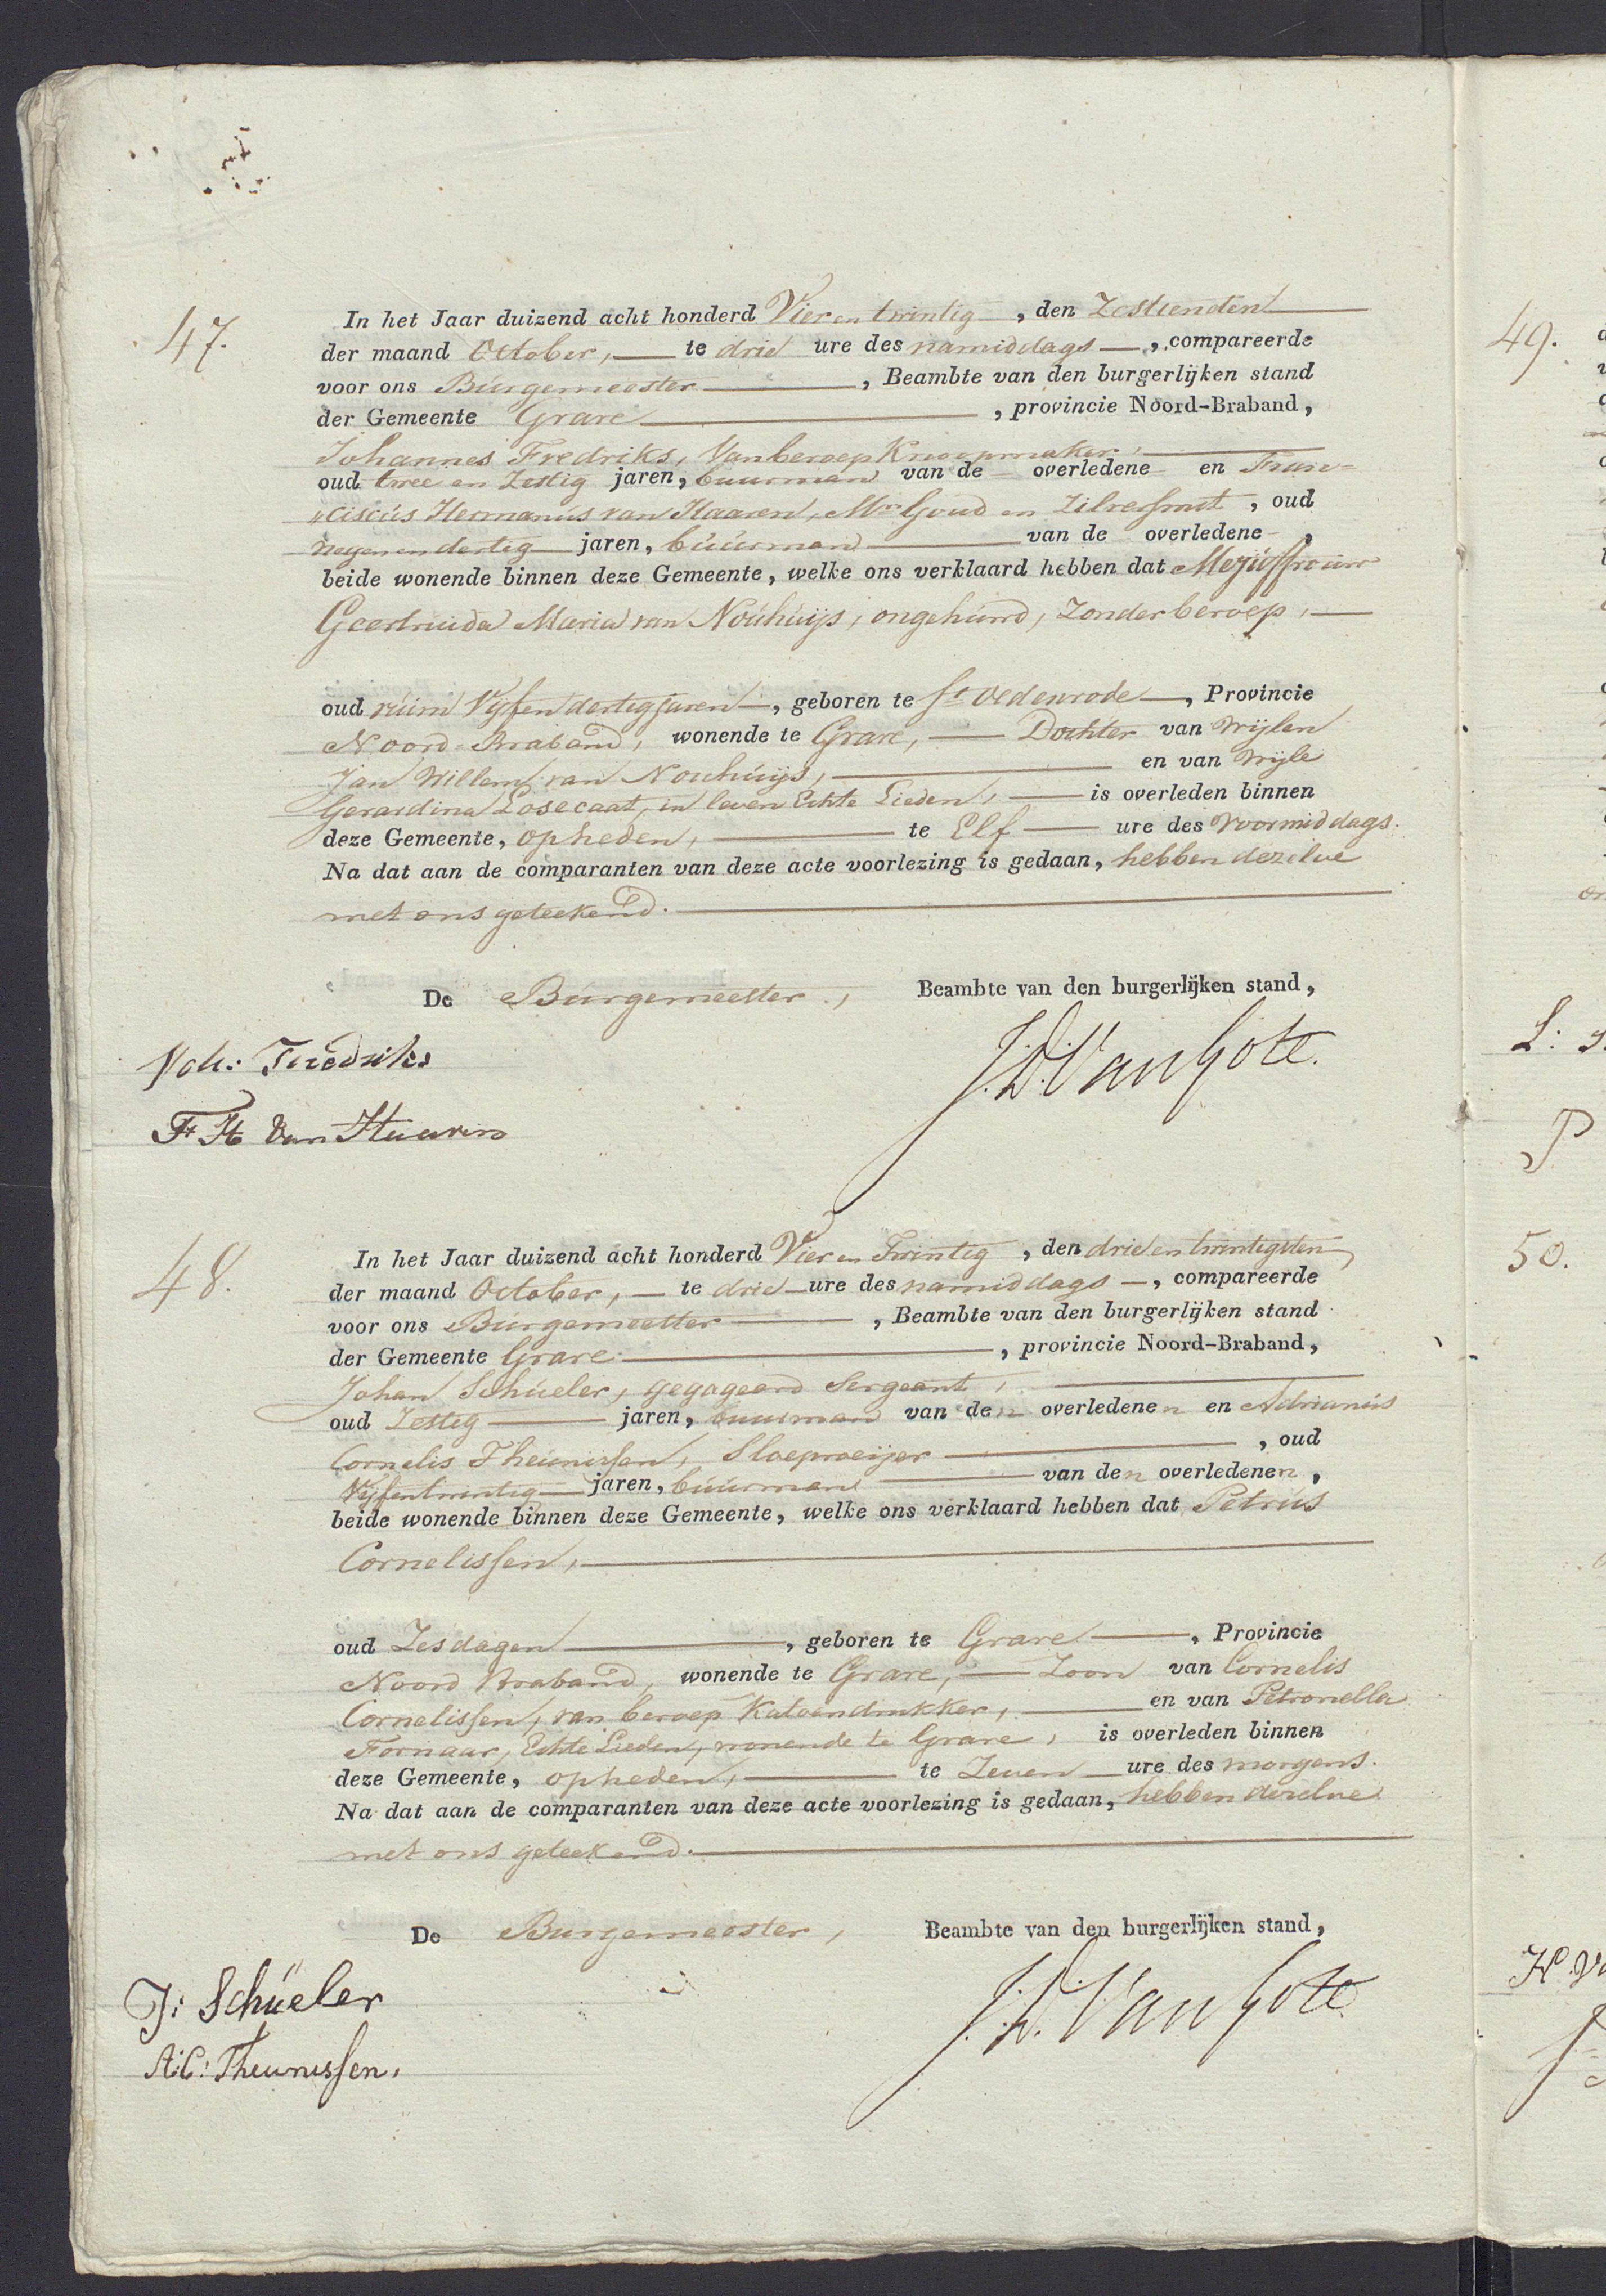 47.
In het Jaar duizend acht honderd Vier en twintig, den Zestienden
der maand October, te drie ure des namiddags, compareerde
voor ons Burgemeester, Beambte van den burgerlijken stand
der Gemeente Grave, provincie Noord-Braband,
Johannes Fredriks, Van beroep Knoopmaker,
oud twee en Zestig jaren, buurman van de overledene en Fran=
"ciscus Hermanus van Haaren, Mr. Goud en Zilversmit, oud
negenendertig jaren, buurman van de overledene,
beide wonende binnen deze Gemeente, welke ons verklaard hebben dat Mejuffrouw
Geertruida Maria van Nouhuijs, ongehuwd, Zonder beroep,
oud ruim Vijfendertig jaren, geboren te St Oedenrode, Provincie
Noord-Braband, wonende te Grave, Dochter van Wijlen
Jan Willem van Nouhuijs, en van Wijle
Gerardina Losecaat, in leven Echte Lieden, is overleden binnen
deze Gemeente, op heden, te Elf ure des Voormiddags.
Na dat aan de comparanten van deze acte voorlezing is gedaan, hebben dezelve
met ons geteekend.
De Burgemeester, Beambte van den burgerlijken stand,
Joh: Fredriks
J.D. Van Gote.
F H van Haaren
48.
In het Jaar duizend acht honderd Vier en Twintig, den drie en twintigsten
der maand October, te drie ure des namiddags, compareerde
voor ons Burgemeester, Beambte van den burgerlijken stand
der Gemeente Grave, provincie Noord-Braband,
Johan Schüeler, gegageerd Sergeant,
oud Zestig jaren, buurman van den overledenen en Adrianus
Cornelis Theunissen, Sloeproeijer, oud
Vijfentwintig jaren, buurman van den overledenen,
beide wonende binnen deze Gemeente, welke ons verklaard hebben dat Petrus
Cornelissen,
oud Zes dagen, geboren te Grave, Provincie
Noord Braband, wonende te Grave, Zoon van Cornelis
Cornelissen, van beroep Katoendrukker, en van Petronella
Fornaar, Echte Lieden, wonende te Grave, is overleden binnen
deze Gemeente, op heden, te Zeven ure des morgens.
Na dat aan de comparanten van deze acte voorlezing is gedaan, hebben dezelve
met ons geteekend.
De Burgemeester, Beambte van den burgerlijken stand,
J: Schüeler
J.D. Van Gote
A:C: Theunissen.
49.
50.